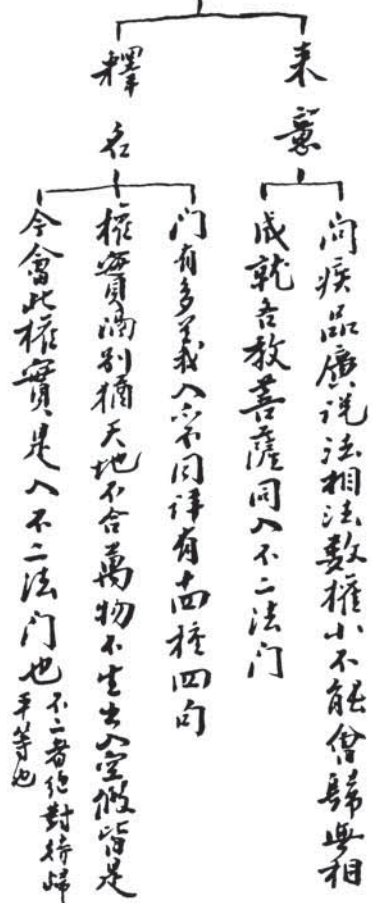 来意
問疾品廣说法相法数權小不能會歸無相
成就吾教菩薩同入不二法门
釋名
门有多義入亦不同详有十四種四句
權實两别猶天地不合萬物不生出入空假皆是
今會此權實是入不二法门也
不二者绝對待歸
平等也